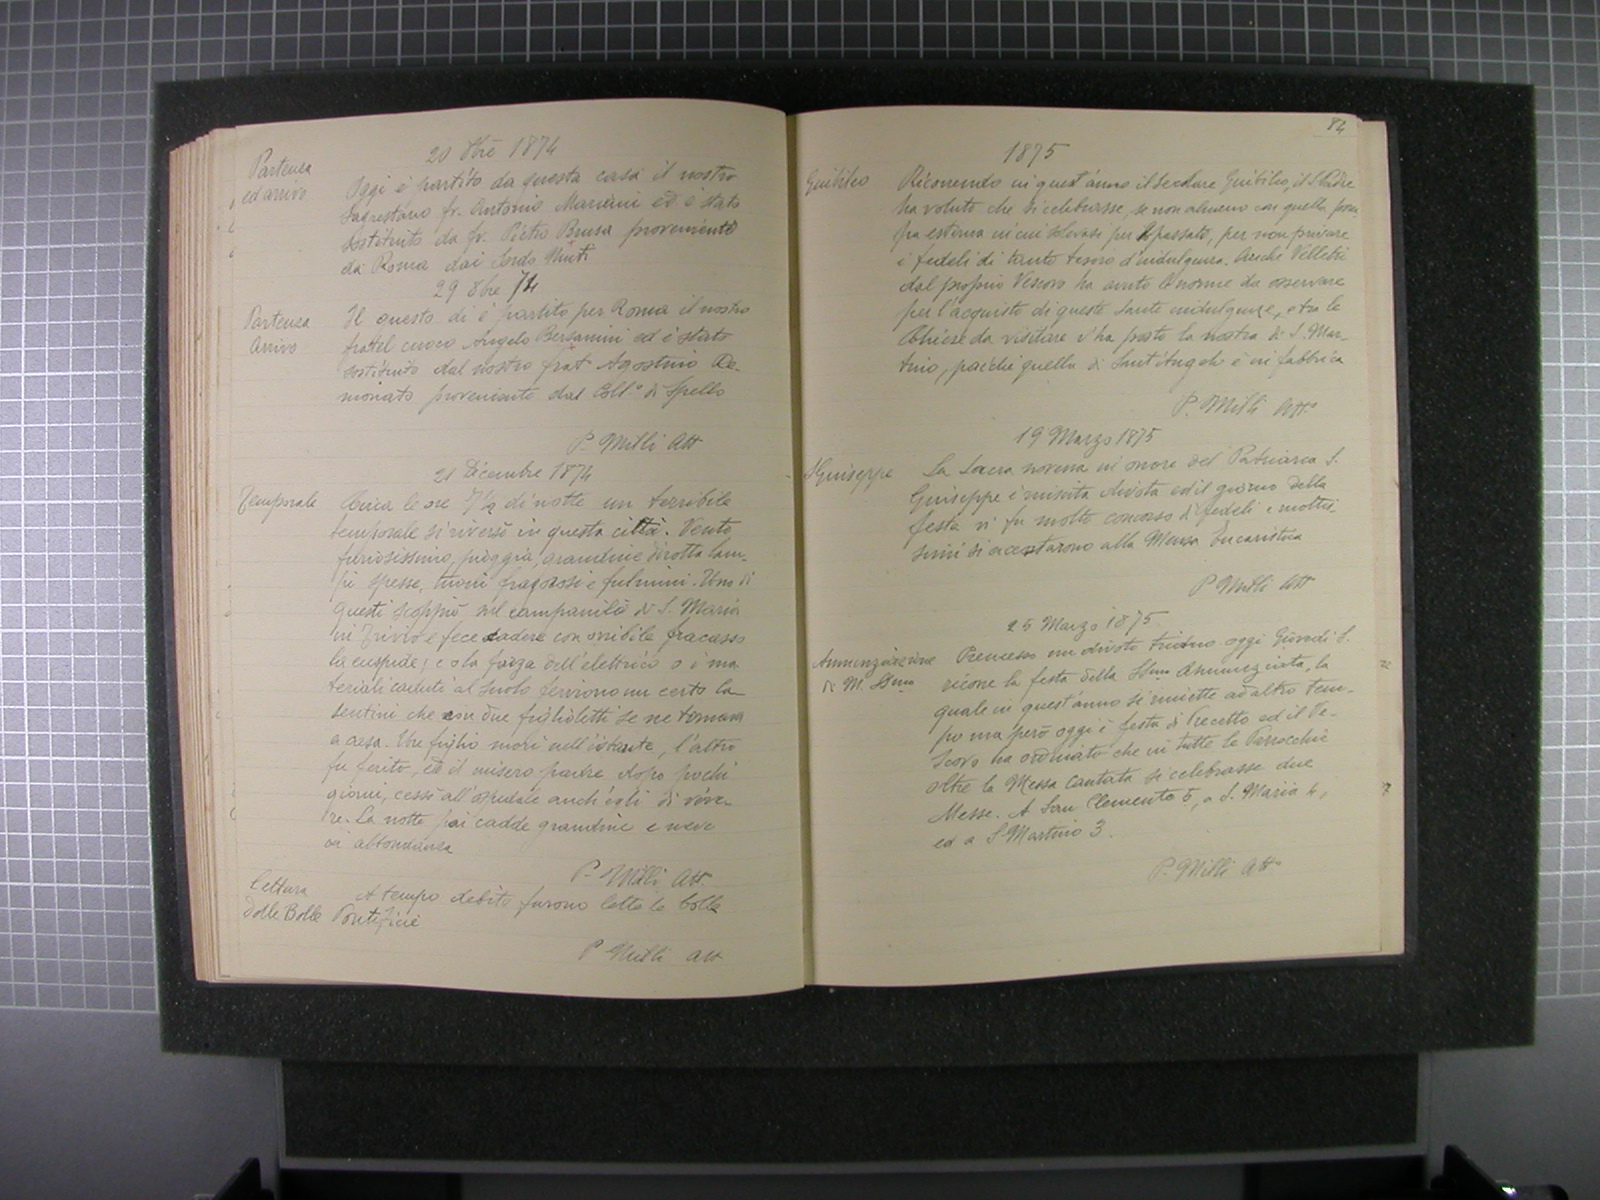 20 8bre 1874
Partenza
ed arrivo
Oggi è partito da questa casa il nostro
Sagrestano fr. Antonio Mariani ed è stato
sostituito da fr. Pietro Brusa proveniente
da Roma dai Sordo Muti
29 8bre 74
Partenza
Arrivo
Il questo dì è partito per Roma il nostro
fratel cuoco Angelo Bersanini ed è stato
sostituito dal nostro frat Agostino
proveniente dal Coll.o di Spello
P. Milli Att
21 Dicembre 1874
Temporale
Circa le ore 7 1/2 di notte un terribile
temporale si riversò in questa città. Vento
furiosissimo, pioggia, grandine dirotta lam-
pi spesse, tuoni fragorosi e fulmini. Uno di
questi scoppiò sul campanile di S. Maria
in Trivio e fece cadere con orribile fracasso
la cuspide; e o la forza dell'elettrico o i ma
teriali caduti al suolo ferirono un certo
Sentini che con due figlioletti se ne tornava
a casa. Un figlio morì nell'istante, l'altro
fu ferito, ed il misero padre dopo pochi
giorni, cessò all'ospedale anch'egli di vive-
re. La notte poi cadde grandine e neve
in abbondanza
P. Milli Att.
Lettura
delle Bolle
A tempo debito furono lette le bolle
Pontificie
P Milli Att
84
1875
Giubileo
Ricorrendo in quest'anno il secolare Giubileo, il S. Padre
ha voluto che si celebrasse, se non almeno con quella pom
pa esterna in cui solevasi per il passato, per non privare
i fedeli di tanto tesoro d'indulgenza. Anche Velletri
dal proprio Vescovo ha avuto le norme da osservare
per l'acquisto di queste sante indulgenze, e tra le
Chiese da visitare v'ha posto la nostra di S. Mar-
tino, poiché quella di Sant'Angelo è in fabbrica
P. Milli Att.o
19 Marzo 1875
S Giuseppe
La sacra novena in onore del Patriarca S.
Giuseppe è riuscita divota ed il giorno della
festa vi fu molto concorso di fedeli e moltis
simi si accostarono alla Mensa Eucaristica
P Milli Att
25 Marzo 1875
Annunziazione
di M. SSma
Premesso un divoto triduo oggi Giovedì S.
ricorre la festa della SSma Annunziata, la
quale in quest'anno si rimette ad altro tem-
po ma però oggi è festa di Precetto ed il Ve-
scovo ha ordinato che in tutte le Parrocchie
oltre la Messa Cantata si celebrasse due
Messe. A San Clemente 5, a S. Maria 4,
ed a S. Martino 3.
P. Milli Att.o